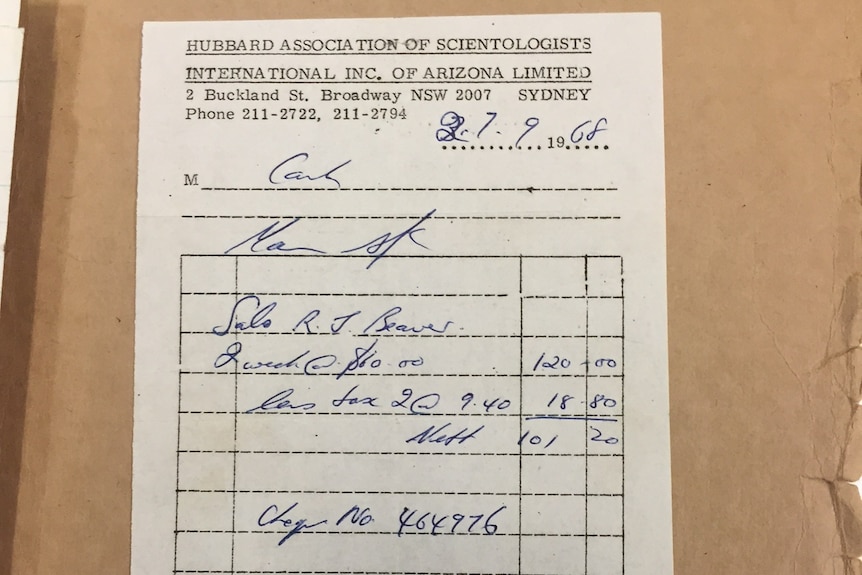 HUBBARD ASSOCIATION OF SCIENTOLOGISTS
INTERNATIONAL INC. OF ARIZONA LIMITED
2 Buckland St. Broadway NSW 2007 SYDNEY
Phone 211-2722, 211-2794
7. 9 1968
M Cash
A/C
Sals R. J. Beaver.
2 week @ $60.00 120-00
less tax 2@ 9.40 18-80
Nett 101 20
No. 464976